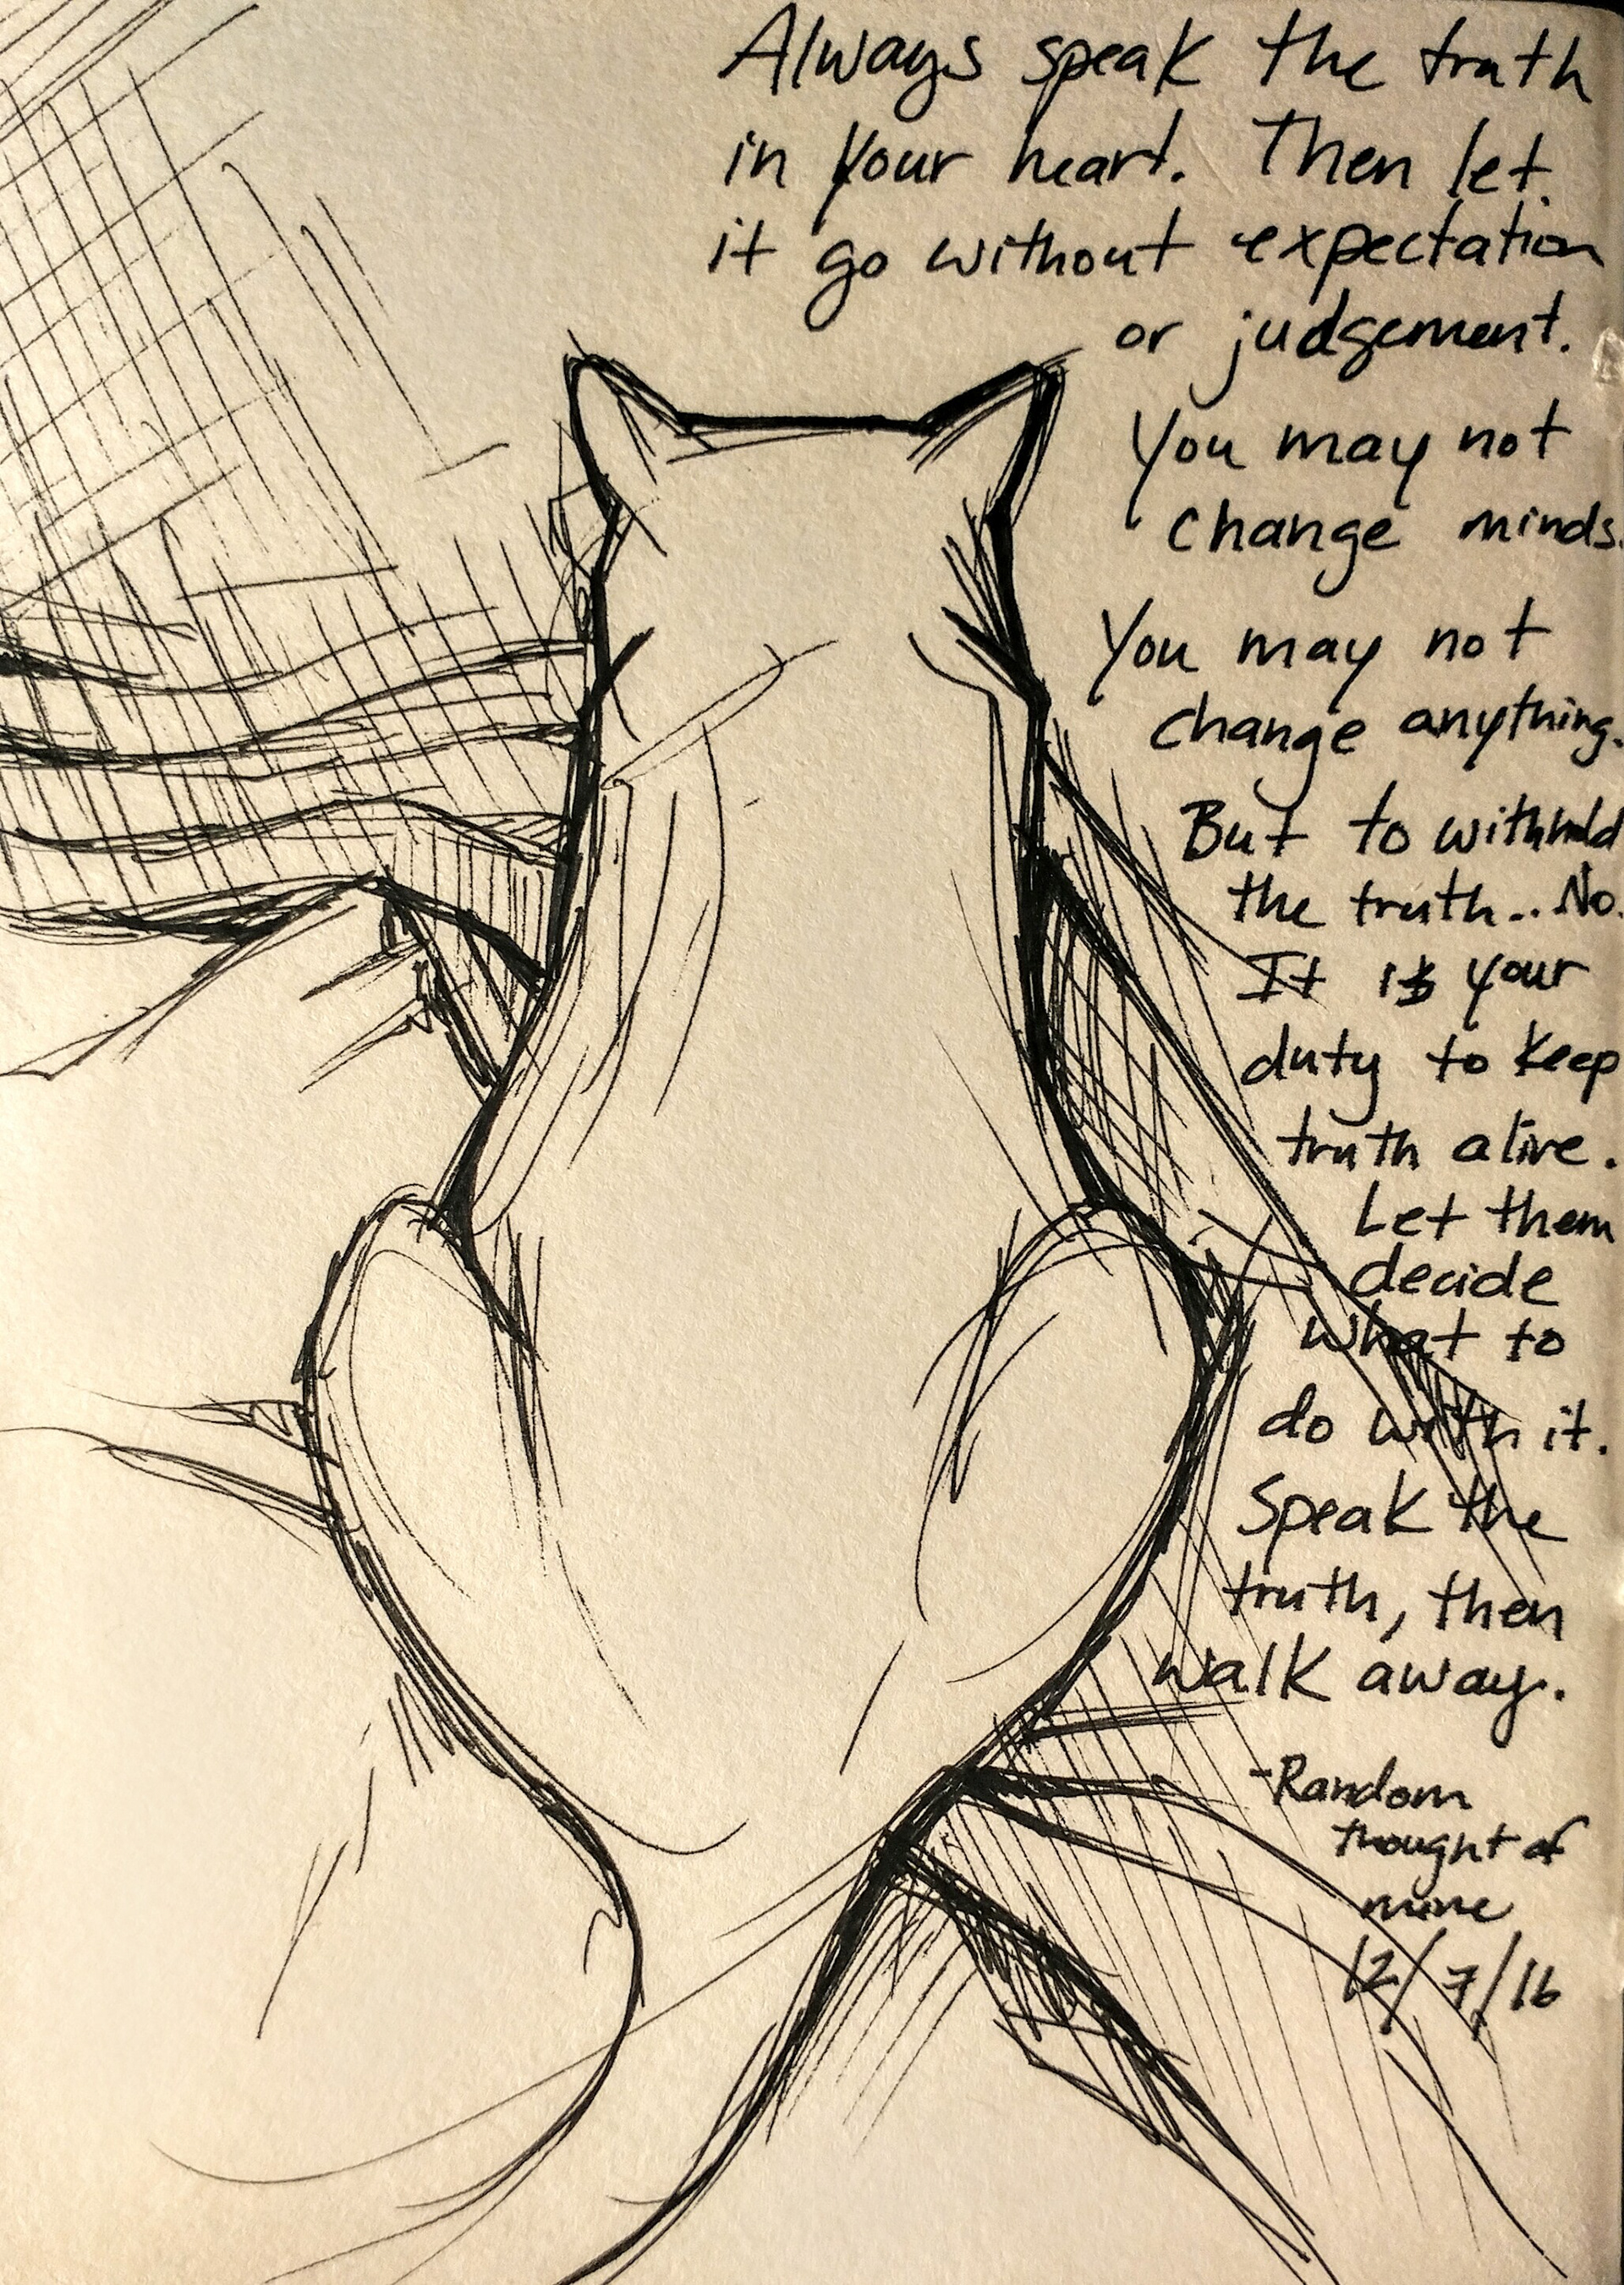 Always speak the truth
in your heart. Then let
it go without expectation
or judgement.
You may not
change minds.
You may not
change anything.
But to withhold
the truth... No.
It is your
duty to keep
truth alive.
Let them
decide
what to
do with it.
Speak the
truth, then
walk away.
-Random
thought of
mine
12/7/16